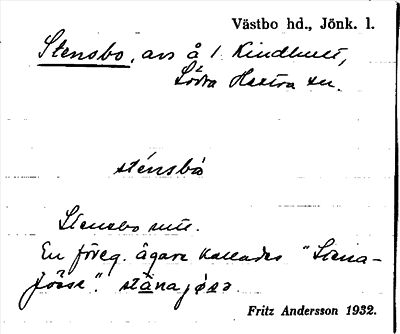 Västbo hd., Jönk. l.
Stensbo, avs å 1 Kindhult,
Södra Hestra sn.
sténsbò
Stensbo mtl.
En föreg. ägare kallades "Stena-
Jösse". stänajøsə
Fritz Andersson 1932.